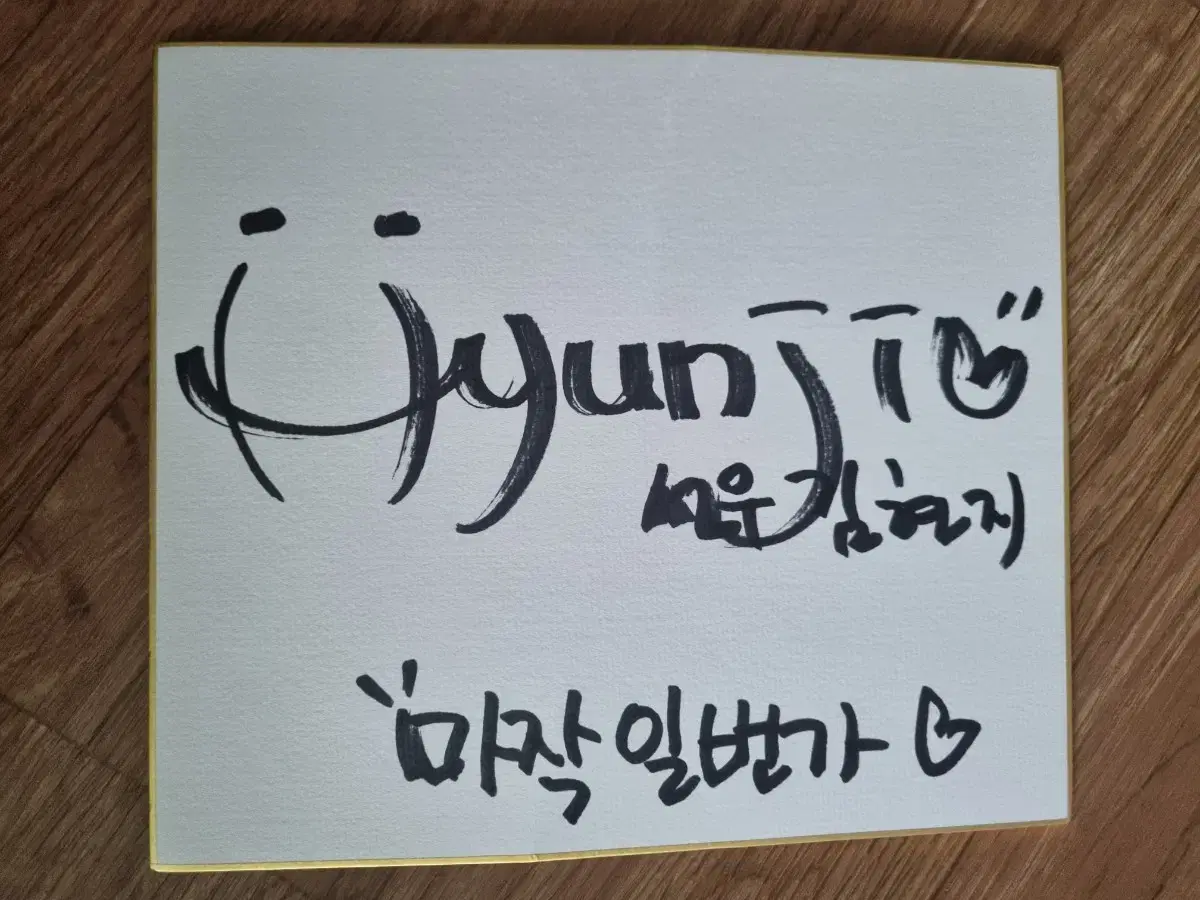 Hyunji
성우 김현지
마작일번가